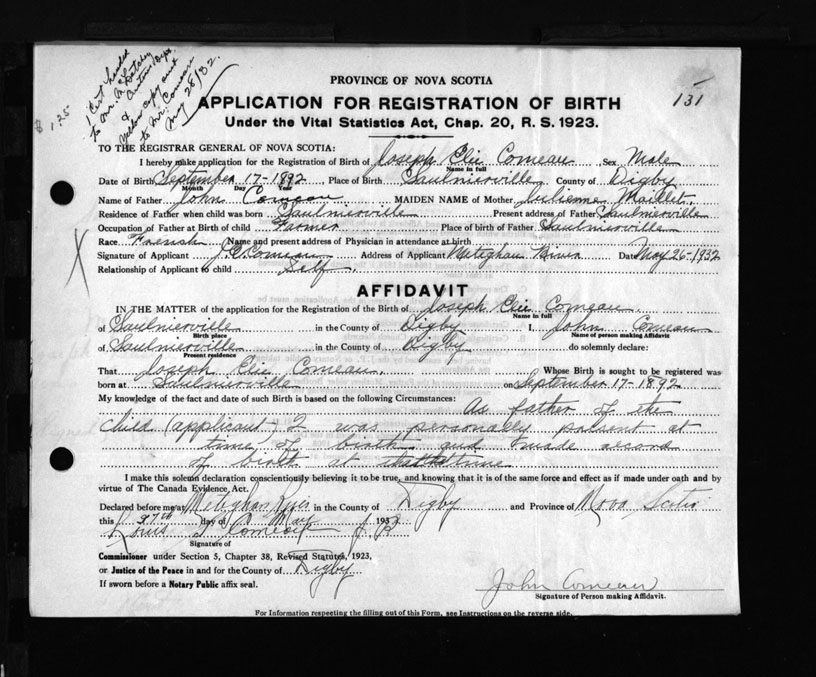 $ 1.25
1 Cert handed
to Mr. A.
&
Yellow copy sent
to Mr. Comeau
May 28/32.
131
PROVINCE OF NOVA SCOTIA
APPLICATION FOR REGISTRATION OF BIRTH
Under the Vital Statistics Act, Chap. 20, R. S. 1923.
TO THE REGISTRAR GENERAL OF NOVA SCOTIA:
I hereby make application for the Registration of Birth of Joseph Elie Comeau Sex Male
Name in full
Date of Birth September 17-1892 Place of Birth Saulnierville County of Digby
Month Day Year
Name of Father John Comeau MAIDEN NAME of Mother Julienne Maillet.
Residence of Father when child was born Saulnierville Present address of Father Saulnierville
Occupation of Father at Birth of child Farmer Place of birth of Father Saulnierville
Race French Name and present address of Physician in attendance at birth
Signature of Applicant J. E. Comeau Address of Applicant Meteghan River Date May 26-1932
Relationship of Applicant to child Self.
AFFIDAVIT
IN THE MATTER of the application for the Registration of the Birth of Joseph Elie Comeau.
Name in full
of Saulnierville in the County of Digby I, John Comeau
Birth place Name of person making Affidavit
of Saulnierville in the County of Digby do solemnly declare:
Present residence
That Joseph Elie Comeau. Whose Birth is sought to be registered was
born at Saulnierville on September 17-1892
My knowledge of the fact and date of such Birth is based on the following Circumstances:
As father of the
child (applicant) I was personally present at
time of birth and made record
of birth at time
I make this solemn declaration conscientiously believing it to be true, and knowing that it is of the same force and effect as if made under oath and by
virtue of The Canada Evidence, Act.
Declared before me at Meteghan River in the County of Digby and Province of Nova Scotia
this 27th day of May 1932
Louis J Comeau J. P.
Signature of
Commissioner under Section 5, Chapter 38, Revised Statutes, 1923,
or Justice of the Peace in and for the County of Digby
If sworn before a Notary Public affix seal.
John Comeau
Signature of Person making Affidavit.
For Information respecting the filling out of this Form, see Instructions on the reverse side.